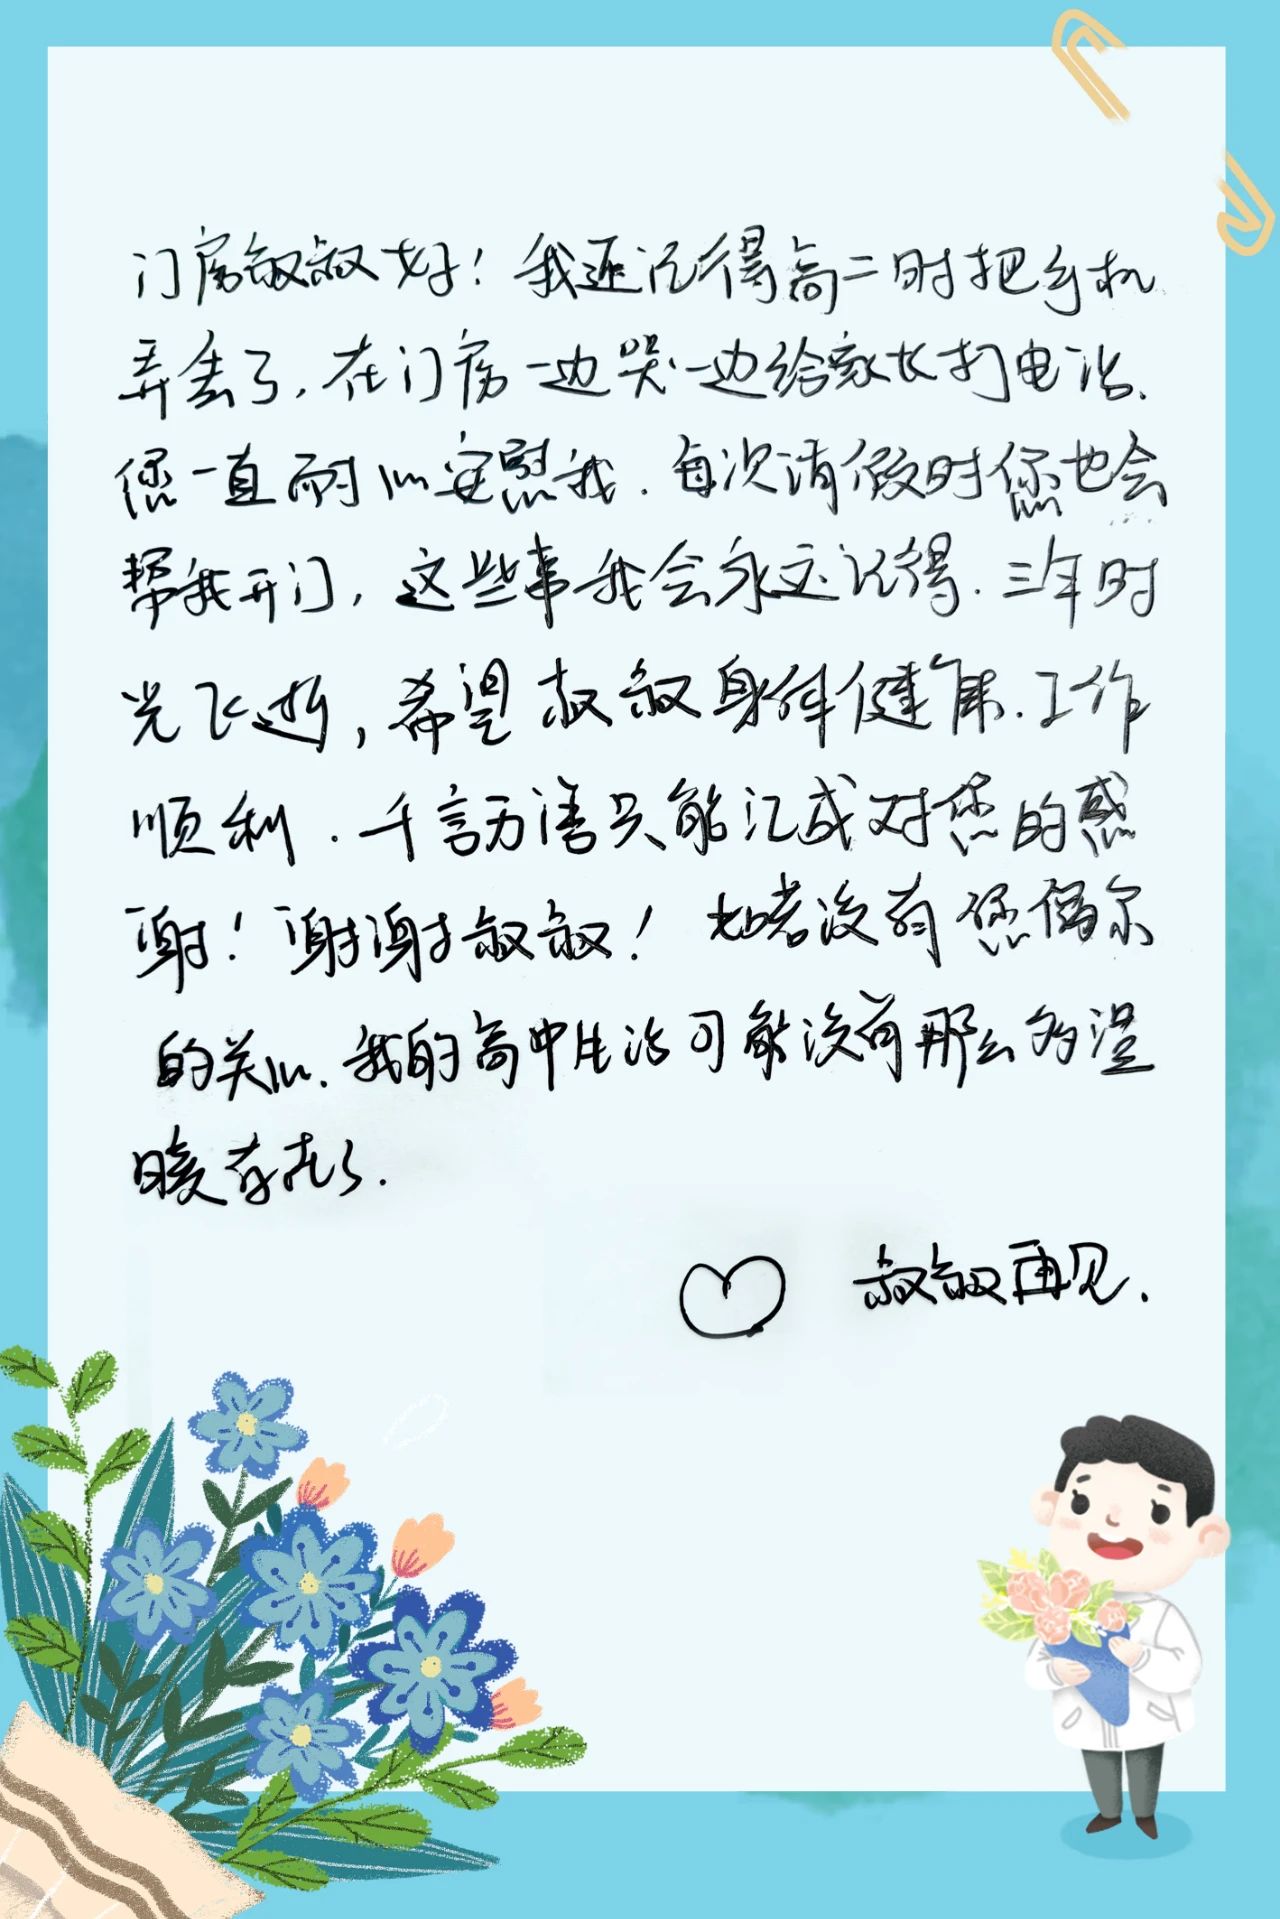 门房叔叔好！我还记得高二时把手机
弄丢了，在门房一边哭一边给家长打电话.
您一直耐心安慰我.每次请假时您也会
帮我开门，这些事我会永远记得.三年时
光飞逝，希望叔叔身体健康.工作
顺利.千言万语只能汇成对您的感
谢！谢谢叔叔！如若没有您偶尔
的关心.我的高中生活可能没有那么多温
暖存在了.
叔叔再见.